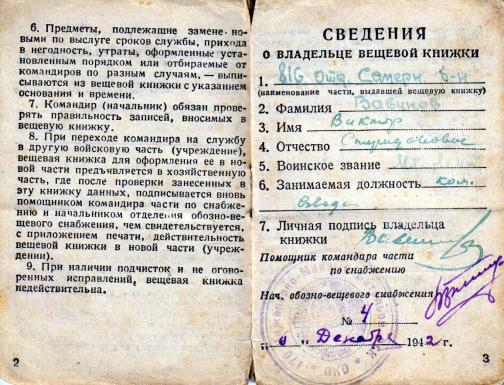 6. Предметы, подлежащие замене новыми по выслуге сроков службы, прихода
в негодность, утраты, оформленные установленным порядком или отбираемые от
командиров по разным случаям, — выписываются из вещевой книжки с указанием
основания и времени.
7. Командир (начальник) обязан проверять правильность записей, вносимых в
вещевую книжку.
8. При переходе командира на службу
в другую войсковую часть (учреждение),
вещевая книжка для оформления ее в новой части предъявляется в хозяйственную
часть, где после проверки занесенных в
эту книжку данных, подписывается вновь
помощником командира части по снабжению и начальником отделения обозно-вещевого снабжения, чем свидетельствуется,
с приложением печати, действительность
вещевой книжки в новой части (учреждении).
9. При наличии подчисток и не оговоренных исправлений, вещевая книжка
недействительна.
2
СВЕДЕНИЯ
О ВЛАДЕЛЬЦЕ ВЕЩЕВОЙ КНИЖКИ
1. 816 отд. Саперн. б-н
(наименование части, выдавшей вещевую книжку)
2. Фамилия
3. Имя Виктор
4. Отчество Спиридонович
5. Воинское звание
6. Занимаемая должность ком.
взвода
7. Личная подпись владельца
книжки
Помощник командира части
по снабжению
Нач. обозно-вещевого снабжения
№ 4
" " Декабря 1942 г.
3